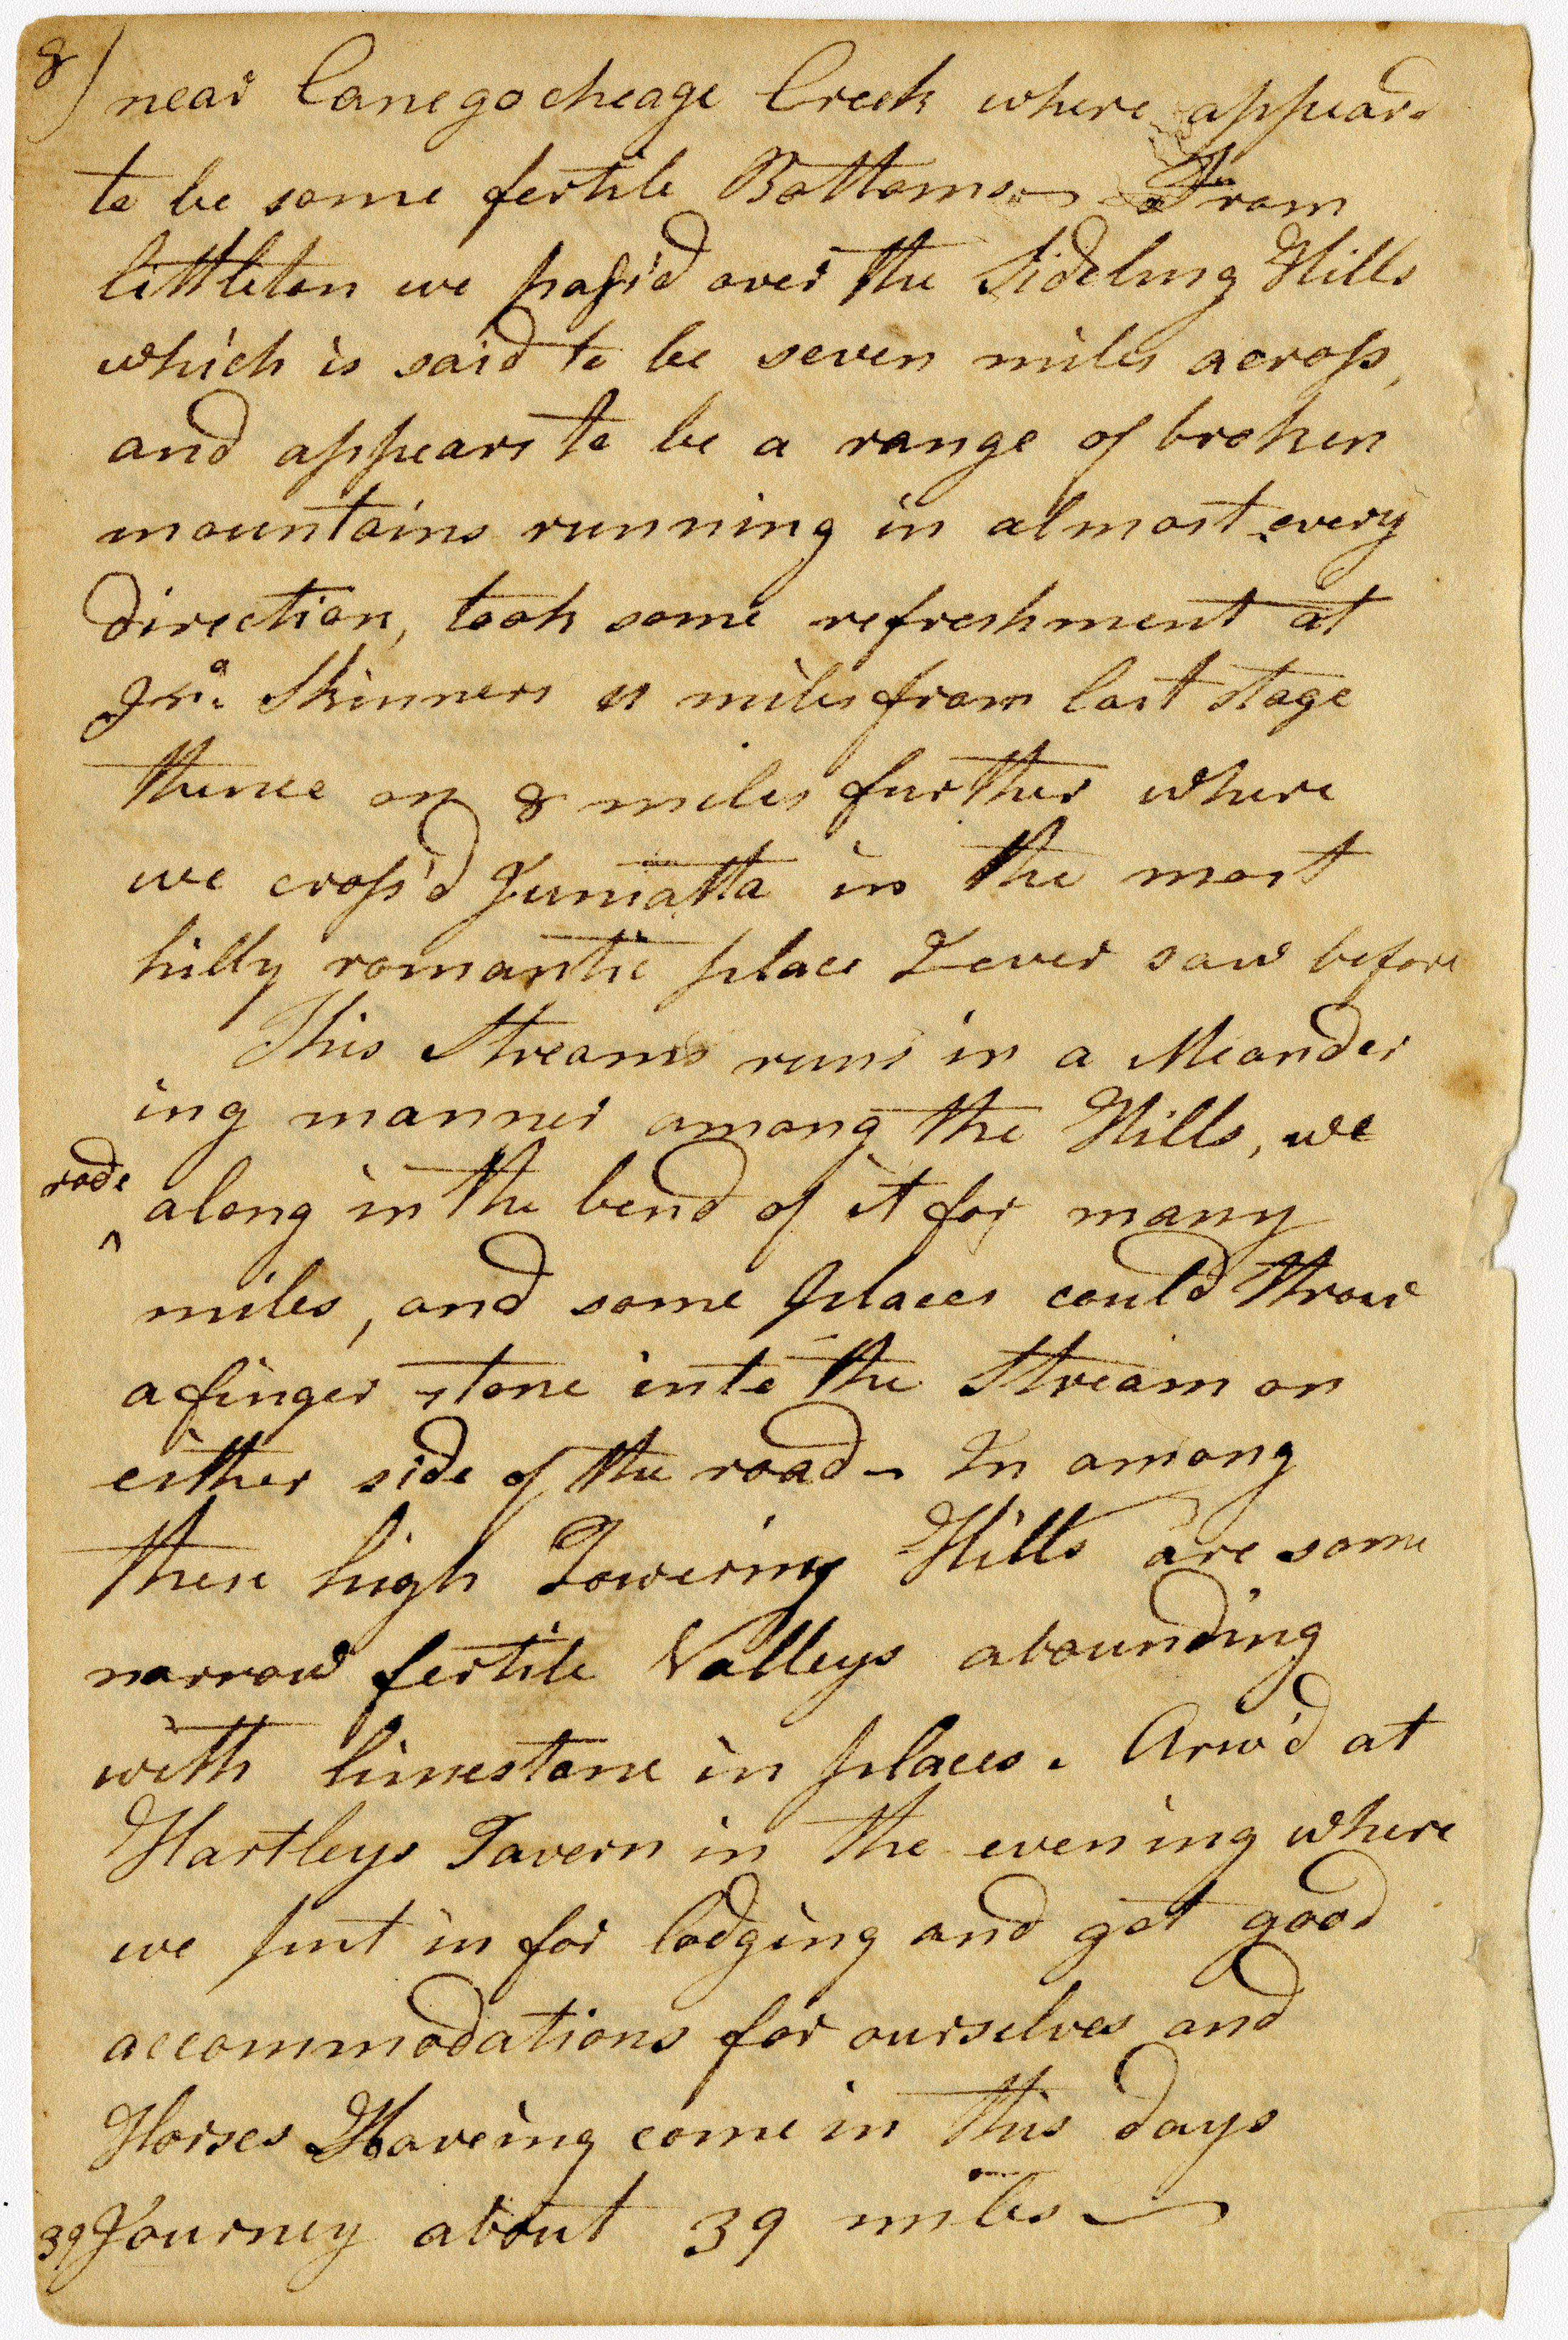 8) near Canegocheage Creek where appears
to be some fertile Bottoms— From
littleton we pass'd over the Sideling Hills
which is said to be seven miles across,
and appears to be a range of broken
mountains running in almost every
direction, took some refreshment at
Jno. Skinners 11 miles from last stage
thence on 8 miles further where
we cross'd Juniatta in the most
hilly romantic place I ever saw before
This Streams runs in a Meander
ing manner among the Hills, we
rode
^ along in the bend of it for many
miles, and some places could throw
a finger stone into the Stream on
either side of the road— In among
these high Towering Hills are some
narrow fertile Valleys abounding
with limestone in places. Ariv'd at
Hartleys Tavern in the evening where
we put in for lodging and got good
accommodations for ourselves and
Horses Haveing come in this days
39 Journey about 39 miles—